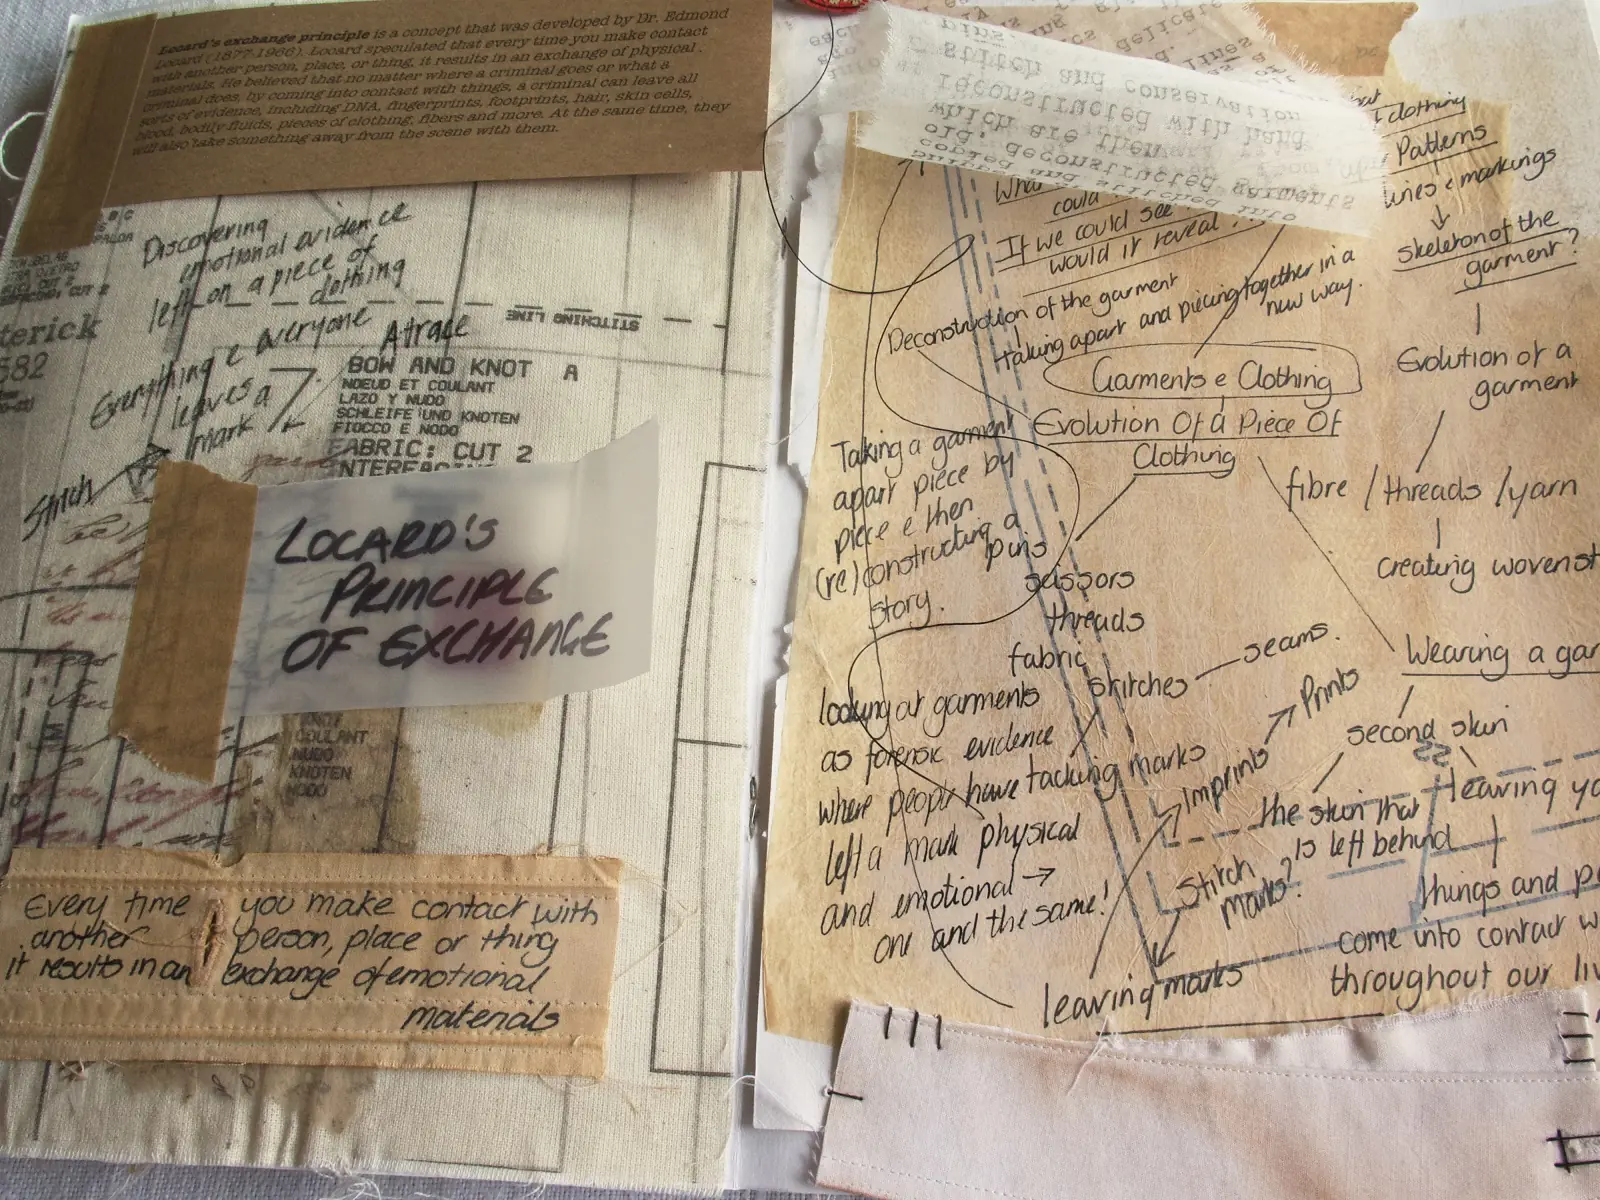 Locard's exchange principle is a concept that was developed by Dr. Edmond
Locard (1877-1966). Locard speculated that every time you make contact
with another person, place, or thing, it results in an exchange of physical
materials. He believed that no matter where a criminal goes or what a
criminal does, by coming into contact with things, a criminal can leave all
sorts of evidence, including DNA, fingerprints, footprints, hair, skin cells,
blood, bodily fluids, pieces of clothing, fibers and more. At the same time, they
will also take something away from the scene with them.
Discovering
emotional evidence
left on a piece of
clothing
STITCHING LINE
Everything & everyone
leaves a
mark
A trace
Stitch
terick
582
BOW AND KNOT A
NOEUD ET COULANT
LAZO Y NUDO
SCHLEIFE UND KNOTEN
FIOCCO E NODO
FABRIC: CUT 2
LOCARD'S
PRINCIPLE
OF EXCHANGE
COULANT
NUDO
KNOTEN
NODO
Every time you make contact with
another person, place or thing
it results in an exchange of emotional
materials
stitch and conservation
reconstructed with hand
which are then
old, deconstructed garments
copied and stitched into
could
If we could see
would it reveal?
Deconstruction of the garment
taking apart and piecing together in a
new way.
Garments & Clothing
Evolution Of a Piece Of
Clothing
clothing
Patterns
lines & markings
skeleton of the
garment?
Evolution of a
garment
fibre / threads / yarn
creating woven st
Taking a garment
apart piece by
piece & then
(re)constructing a
story.
pins
scissors
threads
fabric
stitches
seams.
tacking marks
looking at garments
as forensic evidence
where people have
left a mark physical
and emotional →
one and the same!
Imprints
Prints
Stitch
marks?
leaving marks
Wearing a gar
second skin
the skin that
is left behind
leaving yo
things and pe
come into contact w
throughout our liv